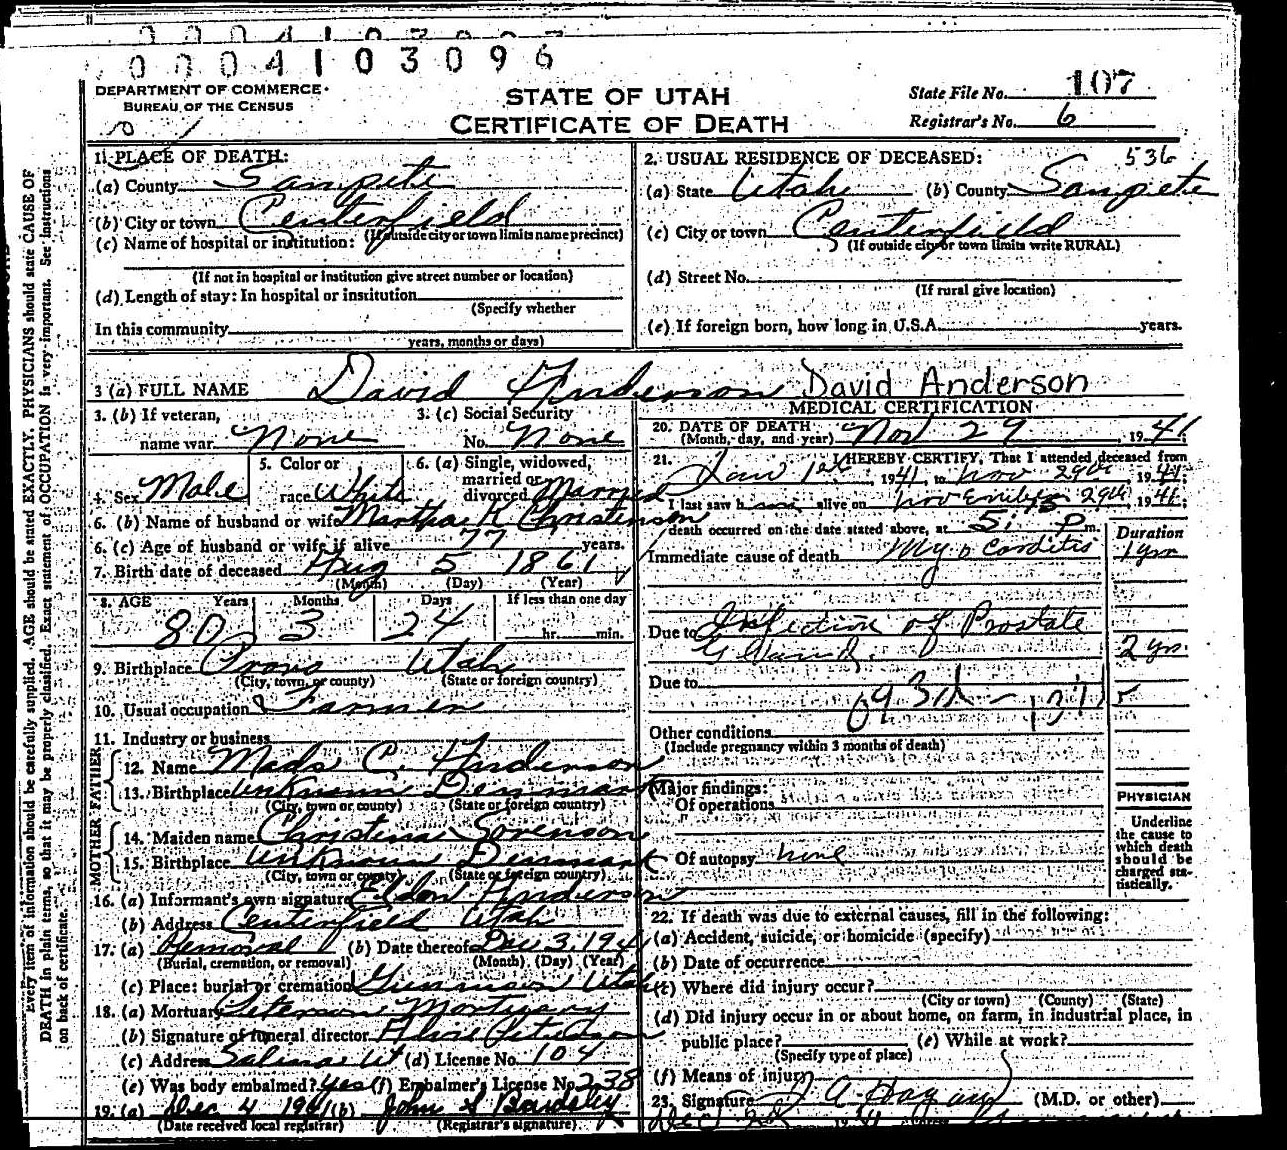 0004103096
DEPARTMENT OF COMMERCE
BUREAU OF THE CENSUS
STATE OF UTAH
CERTIFICATE OF DEATH
State File No. 107
Registrar's No. 6
1. PLACE OF DEATH:
(a) County Sanpete
(b) City or town Centerfield
(If outside city or town limits name precinct)
(c) Name of hospital or institution:
(If not in hospital or institution give street number or location)
(d) Length of stay: In hospital or institution
(Specify whether
In this community
years, months or days)
2. USUAL RESIDENCE OF DECEASED: 536
(a) State Utah (b) County Sanpete
(c) City or town Centerfield
(If outside city or town limits write RURAL)
(d) Street No.
(If rural give location)
(e) If foreign born, how long in U.S.A. years.
3 (a) FULL NAME David Anderson David Anderson
3. (b) If veteran, name war None
3. (c) Social Security No. None
4. Sex Male
5. Color or race White
6. (a) Single, widowed, married or divorced Married
6. (b) Name of husband or wife Martha K Christenson
6. (c) Age of husband or wife if alive 77 years.
7. Birth date of deceased Aug 5 1861
(Month) (Day) (Year)
8. AGE Years Months Days If less than one day
80 3 24 hr. min.
9. Birthplace Utah
(City, town, or county) (State or foreign country)
10. Usual occupation Farmer
11. Industry or business
FATHER
12. Name Mads C. Anderson
13. Birthplace Unknown Denmark
(City, town or county) (State or foreign country)
MOTHER
14. Maiden name Christena Sorenson
15. Birthplace Unknown Denmark
(City, town or county) (State or foreign country)
16. (a) Informant's own signature Eldon Anderson
(b) Address Centerfield Utah
17. (a) Removal (b) Date thereof Dec 3, 1941
(Burial, cremation, or removal) (Month) (Day) (Year)
(c) Place: burial or cremation Gunnison Utah
18. (a) Mortuary Peterson Mortuary
(b) Signature of funeral director Peterson
(c) Address Salina Ut (d) License No. 104
(e) Was body embalmed? Yes (f) Embalmer's License No. 238
19. (a) Dec 4 1941 (b) John S Bardsley
(Date received local registrar) (Registrar's signature)
MEDICAL CERTIFICATION
20. DATE OF DEATH
(Month, day, and year) Nov 29, 1941
21. I HEREBY CERTIFY, That I attended deceased from
Jan 1st, 1941, to Nov 29th 1941
I last saw h alive on Nov 29th, 1941
death occurred on the date stated above, at 5: P m.
Duration
Immediate cause of death Myocarditis 1 yr
Due to Infection of Prostate
Gland. 2 yrs.
Due to
Other conditions
(Include pregnancy within 3 months of death)
Major findings:
Of operations
Of autopsy none
PHYSICIAN
Underline the cause to which death should be charged statistically.
22. If death was due to external causes, fill in the following:
(a) Accident, suicide, or homicide (specify)
(b) Date of occurrence
(c) Where did injury occur?
(City or town) (County) (State)
(d) Did injury occur in or about home, on farm, in industrial place, in
public place? (e) While at work?
(Specify type of place)
(f) Means of injury
23. Signature J A Hagan (M.D. or other)
Every item of information should be carefully supplied. AGE should be stated EXACTLY. PHYSICIANS should state CAUSE OF
DEATH in plain terms, so that it may be properly classified. Exact statement of OCCUPATION is very important. See instructions
on back of certificate.